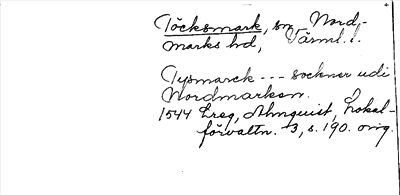 Töcksmark, sn, Nord-
marks hd, Värml. l.
Tysmarck --- sockner udi
Nordmarken.
1544 Ereg, Almquist, Lokal-
förvaltn. 3, s. 190. orig.